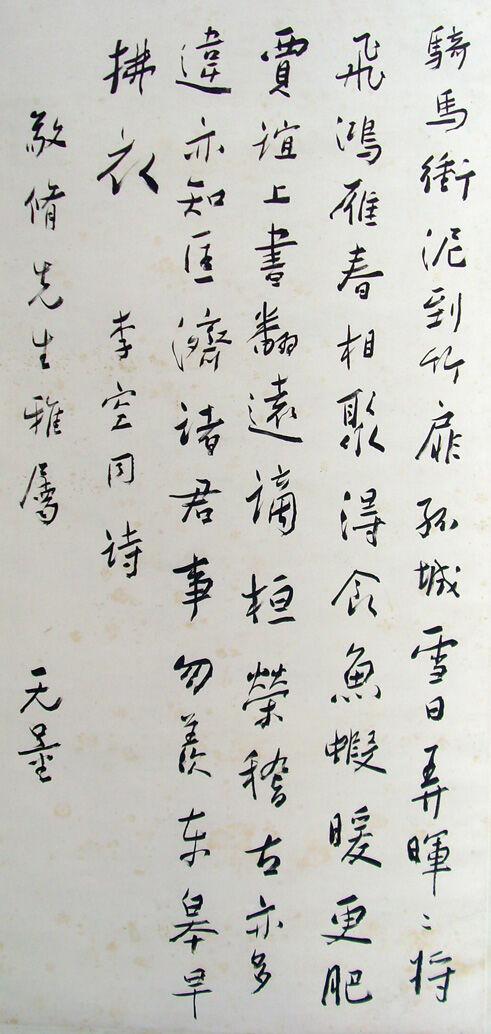 騎馬衝泥到竹扉孤城雪日弄暉〻將
飛鴻雁春相聚得食魚蝦暖更肥
賈誼上書翻遠謫桓榮稽古亦多
違亦知匡濟諸君事勿羨东皋早
拂衣 李空同诗
敬脩先生雅屬 无量